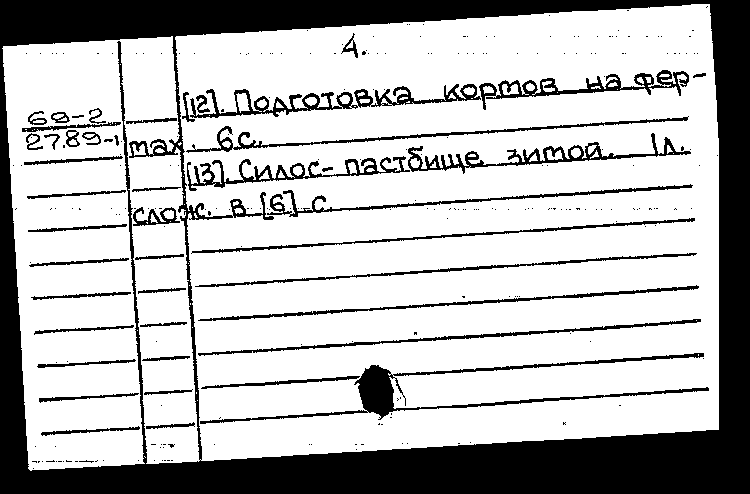 4.
69-2
2789-1
[12]. Подготовка кормов на фер-
мах. 6с.
[13]. Силос - пастбище зимой. 1л.
слож. в [6] с.